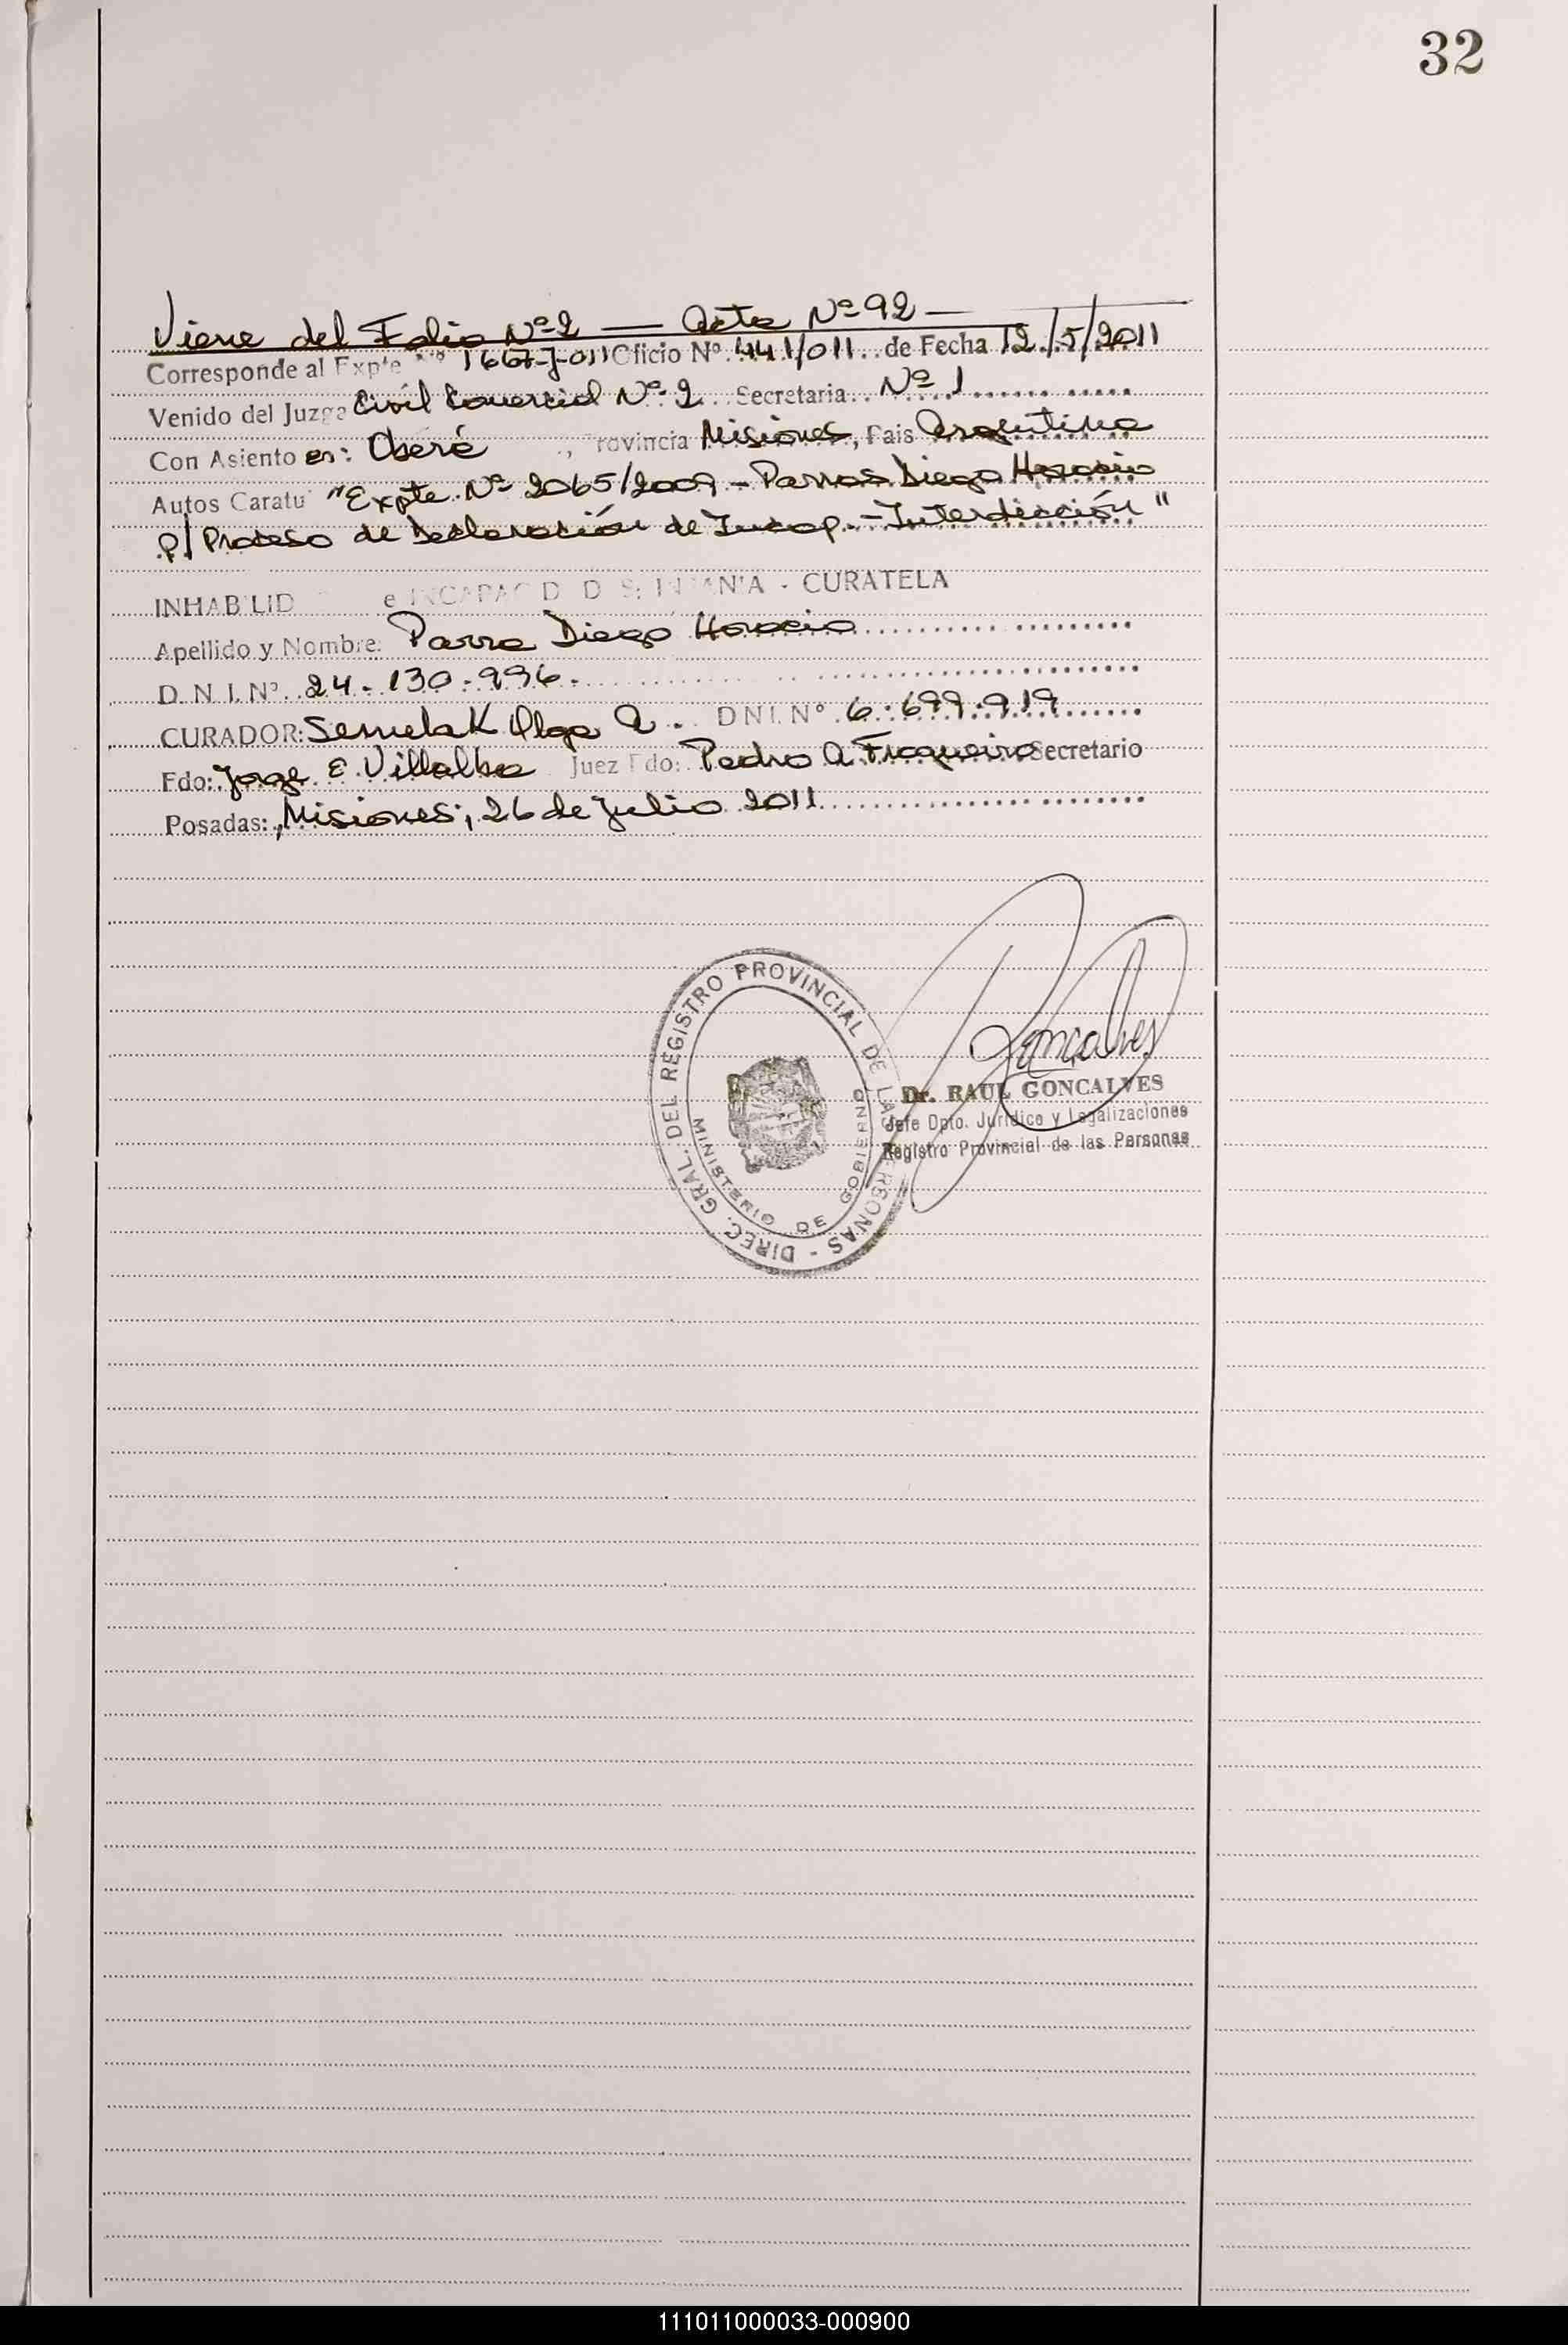 32
Viene del Folio Nº 2 — Acta Nº 92 —
Corresponde al Expte Nº 1667-J-011 Oficio Nº 441/011 de Fecha 12/5/2011
Venido del Juzga Civil Comercial Nº 2 Secretaria Nº 1
Con Asiento en: Oberá, rovincia Misiones, Pais Argentina
Autos Caratu "Expte. Nº 2065/2009 - Parra Diego Horacio
p/ Proceso de Declaración de Incap. - Interdicción"
INHABILID e INCAPACID D S: IN ANIA - CURATELA
Apellido y Nombre: Parra Diego Horacio
D.N.I. Nº 24.130.996.
CURADOR: Olga A. DNI. Nº 6.699.919
Fdo: Jorge E Villalba Juez Fdo: Pedro A Fragueiro Secretario
Posadas:, Misiones; 26 de Julio 2011
DIREC. GRAL. DEL REGISTRO PROVINCIAL DE LAS PERSONAS -
MINISTERIO DE GOBIERNO
Goncalves
Dr. RAUL GONCALVES
Jefe Dpto. Jurídico y Legalizaciones
Registro Provincial de las Personas
111011000033-000900